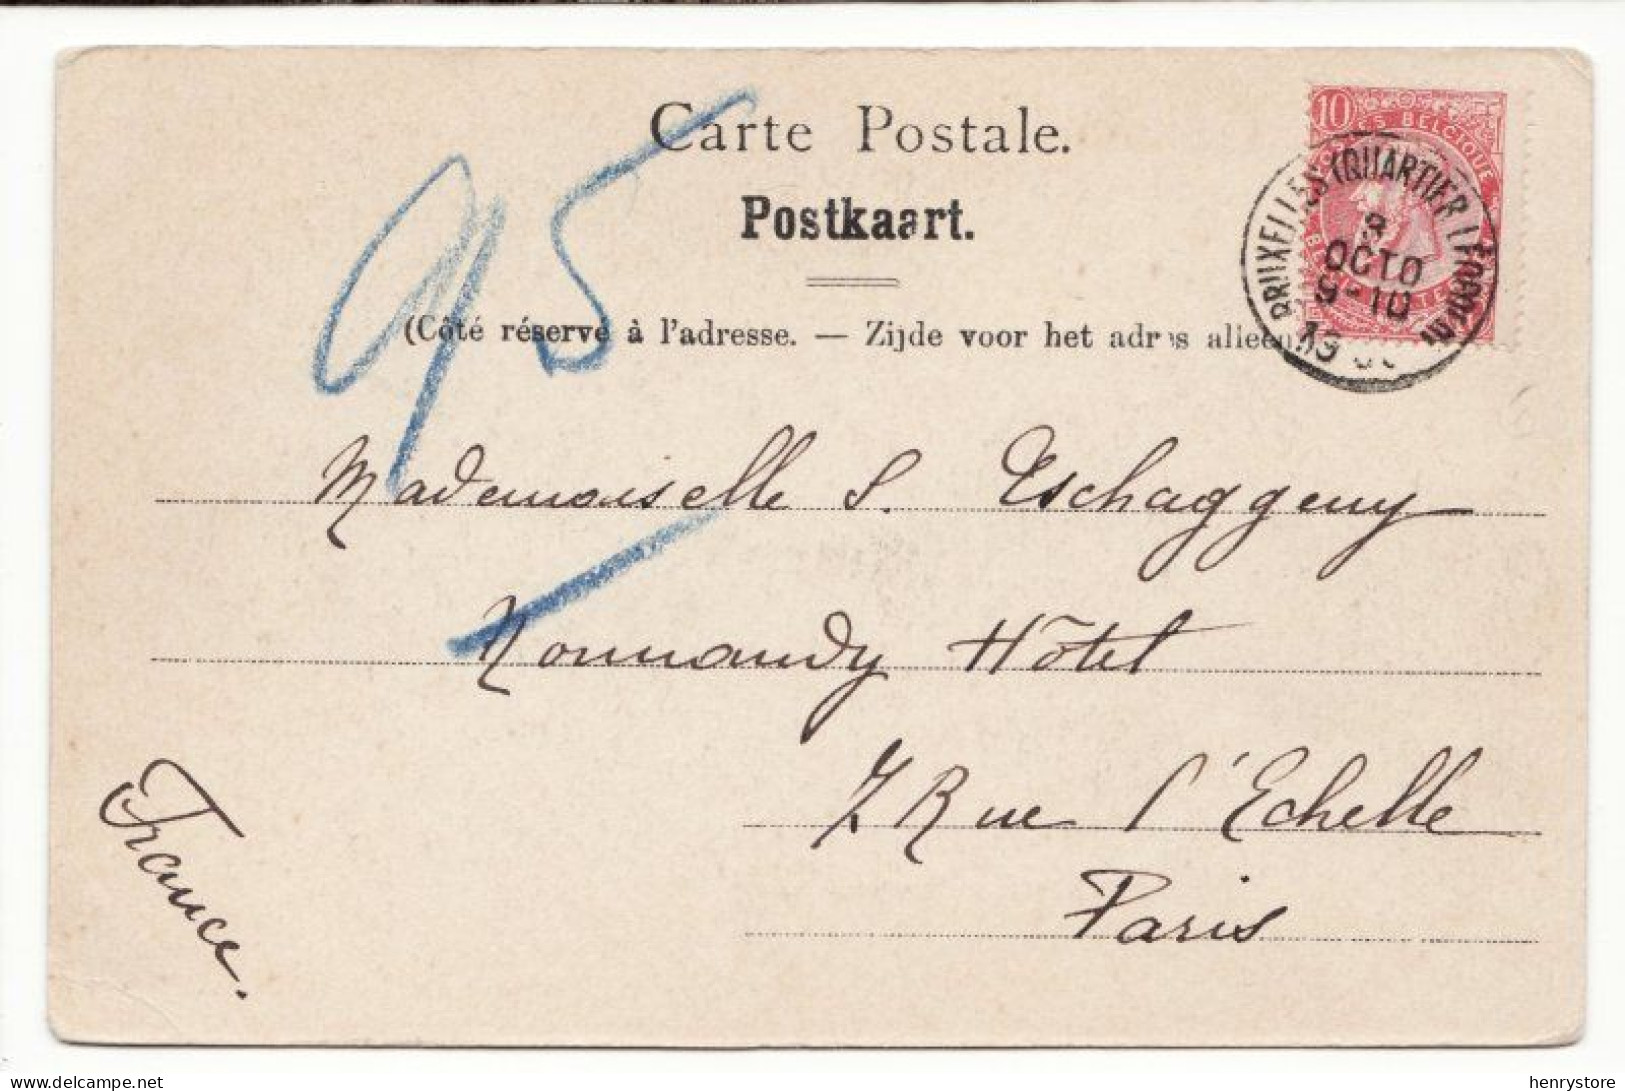 Carte Postale.
Postkaart.
(Côté réservé à l'adresse. — Zijde voor het adres alleen.)
10
POSTES BELGIQUE
BRUXELLES (QUARTIER LÉOPOLD)
3
OCTO
9-10
95
Mademoiselle S. Tschaggeny
Normandy Hôtel
7 Rue l'Echelle
Paris
France.
delcampe.net
henrystore